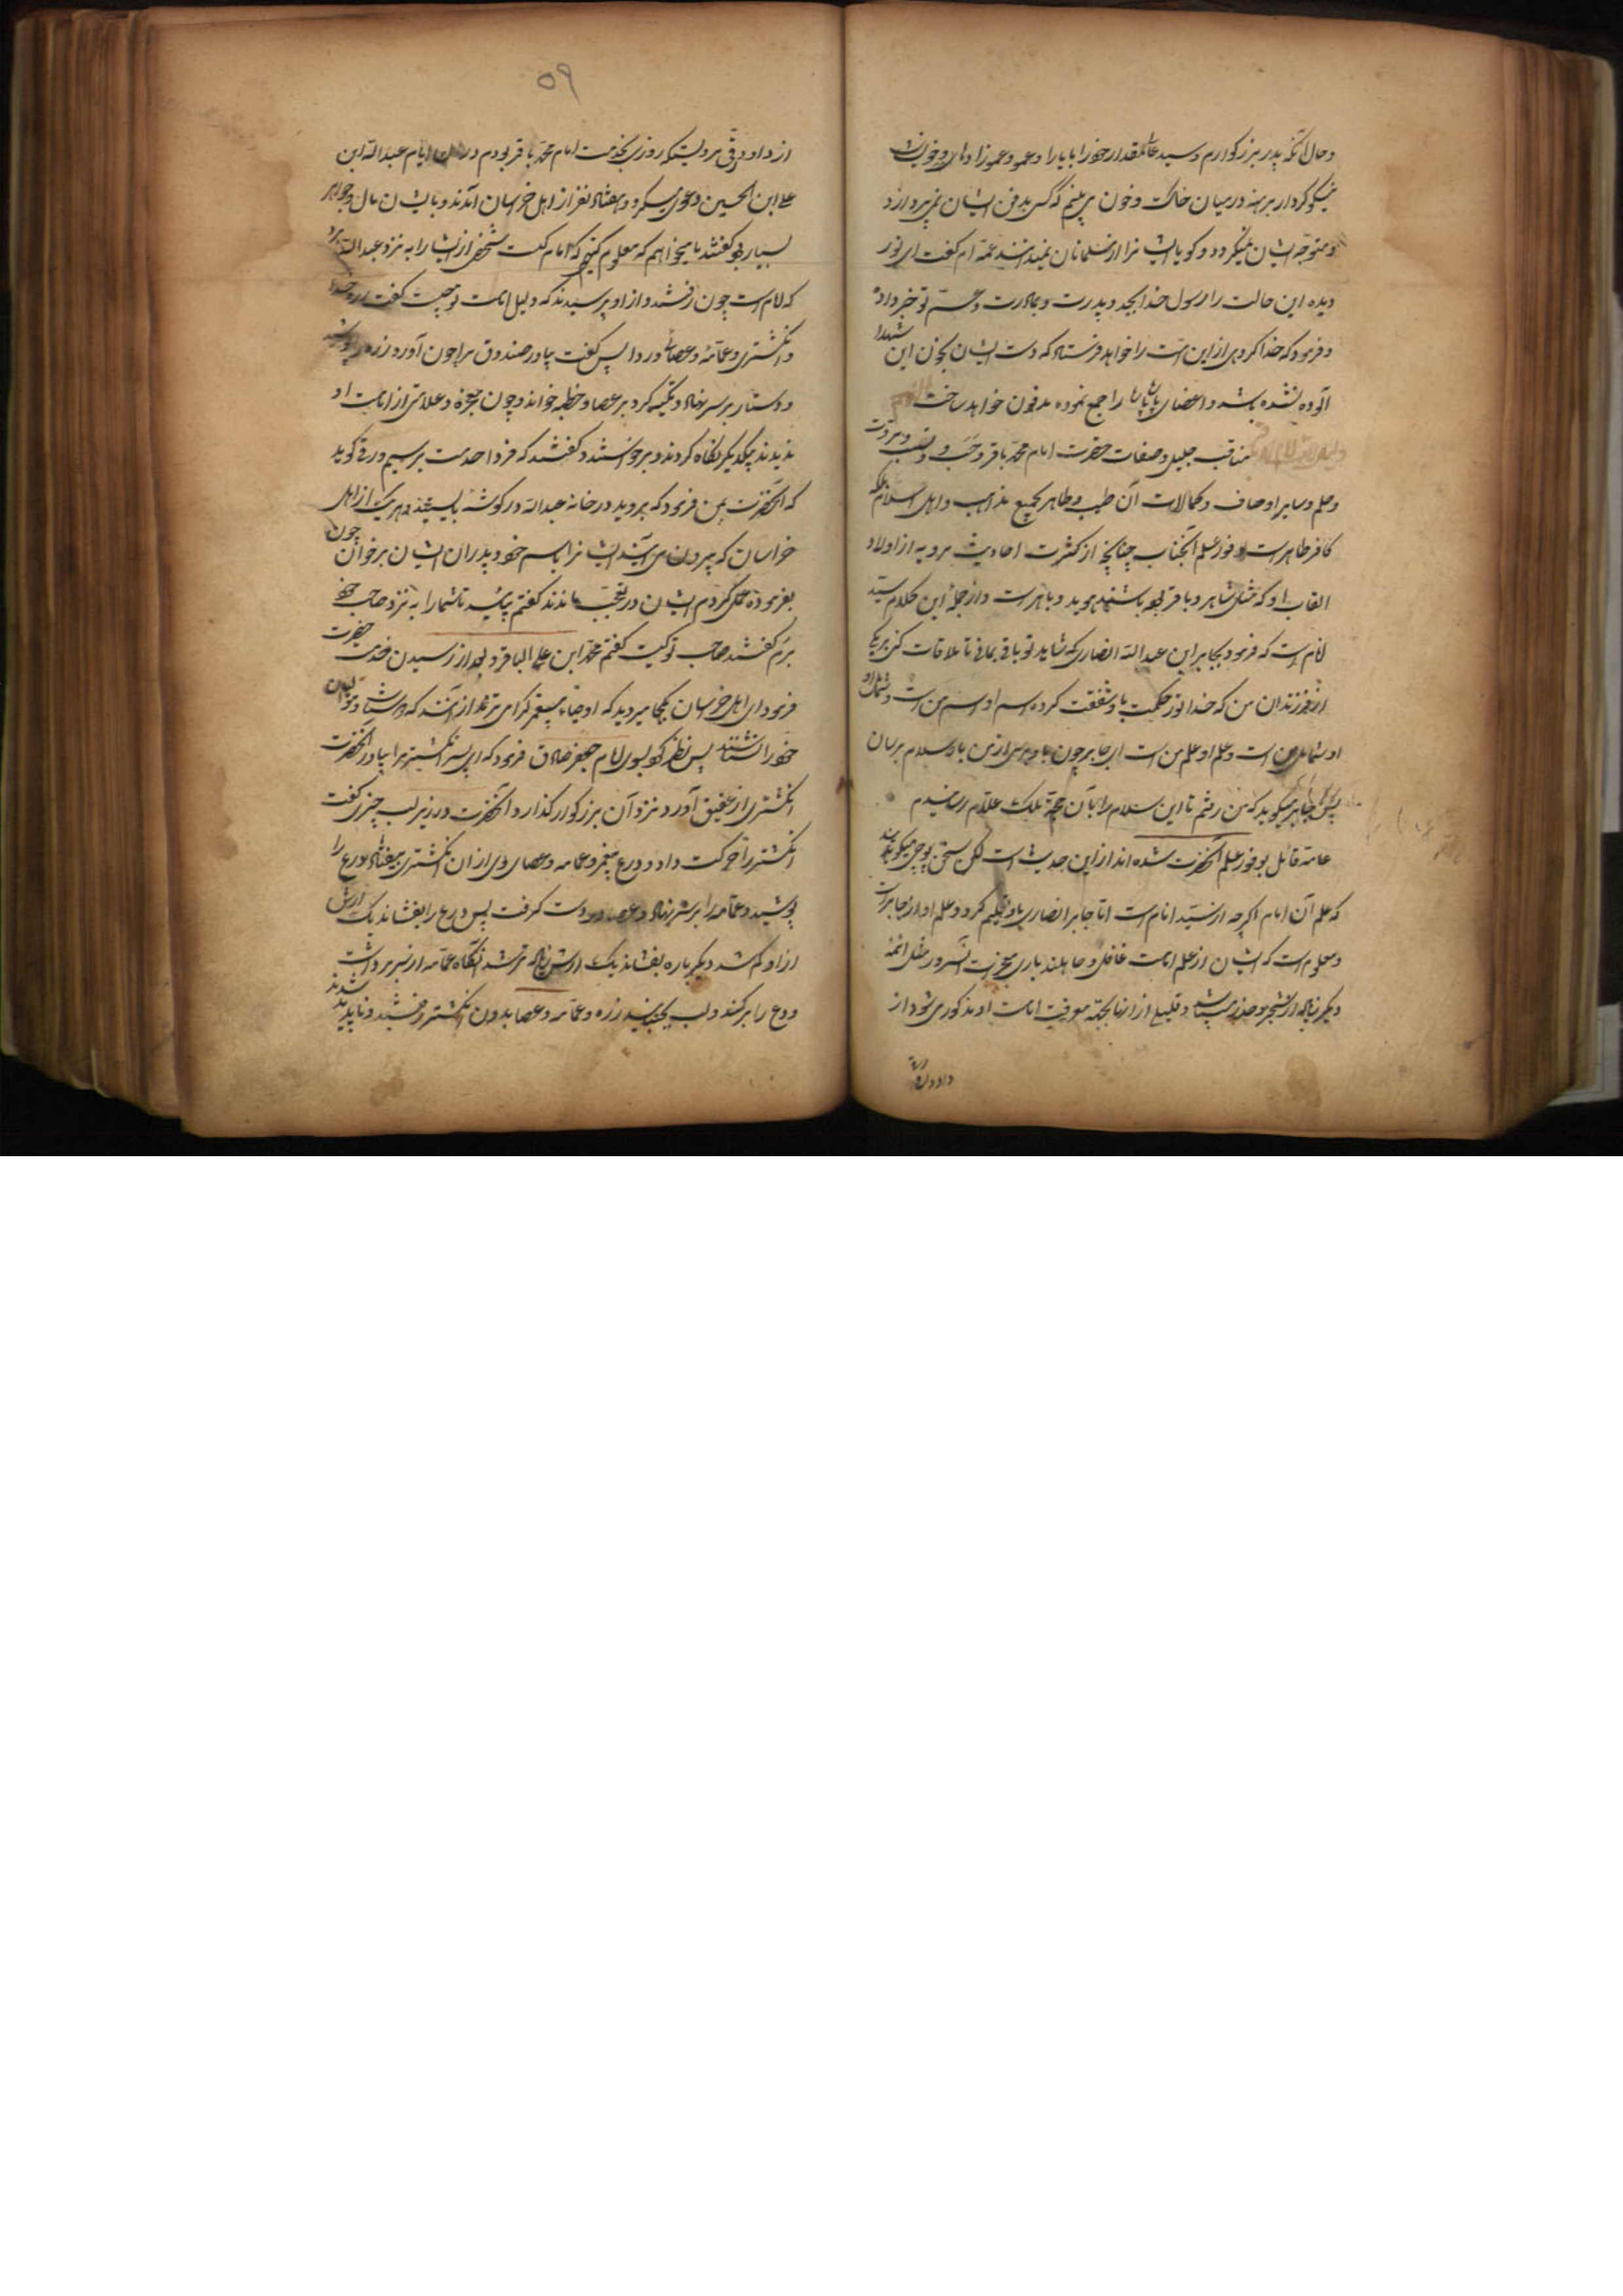 وحال آنکه پدر بزرگوارم وسید عالیمقدار خود را با برادر وعمو وعموزادها
نیکو کردار برهنه در میان خاک و خون می بینم که کس بدفن ایشان نمی پردازد
ومتوجه ایشان نمیگردد و کویا ایشانرا از مسلمانان نمیدانند عمه ام گفت ای نور
دیده این حالت را رسول خدا بجد و پدرت و عم تو خبر داده
و فرمود که خدا کروهی از این امت را خواهد فرستاد که دست ایشان بخون این شهدا
آلوده نشده باشد و اعضای را جمع نموده مدفون خواهد ساخت
مناقب جلیل وصفات حضرت امام محمد باقر و حسب و نسب و مروت
وحلم وسایر اوصاف و کمالات آن طیب و طاهر بجمیع مذاهب و اهل اسلام بلکه
کافر ظاهر است وفور علم آنجناب چنانچه از کثرت احادیث مرویه از اولاد
القاب او که مثل شاهر و باقر باشند هوید و باهر است و از جمله این کلام سید
انام است که فرمود بجابر ابن عبد الله انصاری که شاید تو باقی بمانی تا ملاقات کنی بیکی
از فرزندان من که خدا نور حکمت باو شفقت کرده اسم او اسم من است و شمایل
او شمایل من است و علم او علم من است ای جابر چون باو برسی از من باو سلام برسان
پس جابر میگوید که من رفتم تا این سلام را بآن حجة ملک علام رسانیدم
عامه قایل بوفور علم آنحضرت شده اند از این حدیث است لکن سخن پوچی میگویند
که علم آن امام اگرچه از سید انام است اما جابر انصاری باو تعلیم کرد و علم او از جابر است
ومعلوم است که ایشان از علم امامت غافل و جاهلند باری معجزات آنسرور مثل ائمه
دیگر زیاده از شجر و حد است و قلیلی از انها بجهة معرفت امامت او مذکور می شود از
داود رقی
۵۹
از داود رقی مرویست که روزی بخدمت امام محمد باقر بودم در ایام عبد الله ابن
علی ابن الحسین دعوی میکرد و هفتاد نفر از اهل خراسان آمدند و با ایشان مال و جواهر
بسیار بود گفتند ما میخواهیم که معلوم کنیم که امام کیست شخصی از ایشانرا به نزد عبد الله برد
که امام است چون رفتند و از او پرسیدند که دلیل امامت تو چیست گفت زره رسول خدا
و انگشتری و عمامه و عصا و ردا پس گفت بیاور صندوق مرا چون آورد زره پوشید
و دستار بر سر نهاد و تکیه کرد بر عصا و خطبه خواند و چون معجزه و علامتی از امامت او
ندیدند بیکدیگر نگاه کردند و برخواستند و گفتند که فردا خدمت برسیم ورقی گوید
که آنحضرت بمن فرمود که بروید در خانه عبد الله در گوشه بایستید و هر یک از اهل
خراسان که بیرون می آیند ایشانرا باسم خود و پدران ایشان بر خوان چون
بفرموده عمل کردم ایشان در تعجب ماندند گفتم بیائید تا شما را به نزد صاحب خود
برم گفتند صاحب تو کیست گفتم محمد ابن علی الباقر و بعد از رسیدن خدمت حضرت
فرمود ای اهل خراسان بکجا میروید که اوصیاء پیغمبر گرامی تر از آنند که
خود را پس نظر کو بسوی امام جعفر صادق فرمود که ای پسر انگشتر مرا بیاور آنحضرت
انگشتری از عقیق آورد نزد آن بزرگوار گذارد و آنحضرت در زیر لب چیزی گفت
انگشتر را حرکت داد و درع پیغمبر و عمامه و عصای وی از ان انگشتری بیفتاد درع را
پوشید و عمامه را بر سر نهاد و عصا در دست گرفت پس درع را بفشاند یک ارش
از او کم شد دیگر باره بفشاند یک ارش زیاده تر شد آنگاه عمامه از سر برداشت
و درع را بر کند و لب بجنبانید زره و عمامه و عصا بدرون انگشتر رفتند و ناپدید شدند